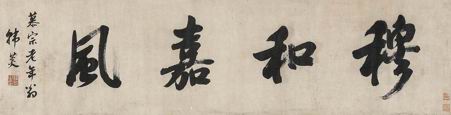 穆和嘉風
慕宗老年翁
韩菼